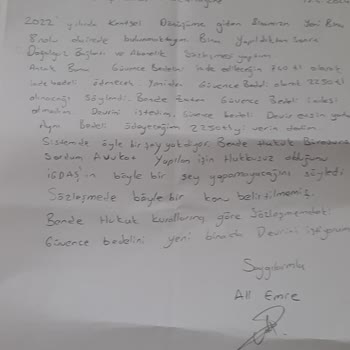 2022 yılında Kentsel Dönüşüme giden Binamızın Yeni Bina
dairede bulunmaktayım. Bina Yapıldıktan Sonra
Doğalgaz Bağlantı ve Abonelik Sözleşmesi yaptım.
Ancak Bana Güvence Bedelini iade edileceğin 760 tl olarak
iade bedeli ödenerek Yeniden Güvence Bedeli olarak 2250 tl
alınacağı Söylendi. Bende Zaten Güvence Bedeli iadesi
almadım Devrini istedim. Güvence bedeli Devir
Aynı Bedeli ödeyeceğim 2250 tl yi verin dedim.
Sistemde öyle bir şey yok diyor. Bende Hukuk Bürosuna
Sordum Avukat Yapılan işin Hukuksuz olduğunu
İGDAŞ'ın böyle bir şey yapamayacağını söyledi
Sözleşmede böyle bir konu belirtilmemiş.
Bende Hukuk kurallarına göre Sözleşmemdeki
Güvence bedelini yeni binada Devrini istiyorum
Saygılarımla
Ali Emre